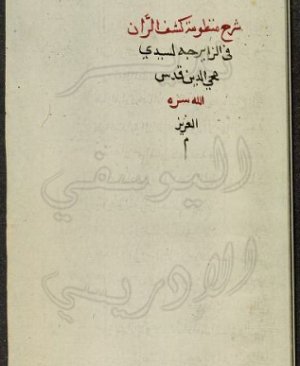 شرح منظومة كشف الران
في الزايرجه لسيدي
محي الدين قدس
الله سره
العزيز
م
اليوسفي
الادريسي